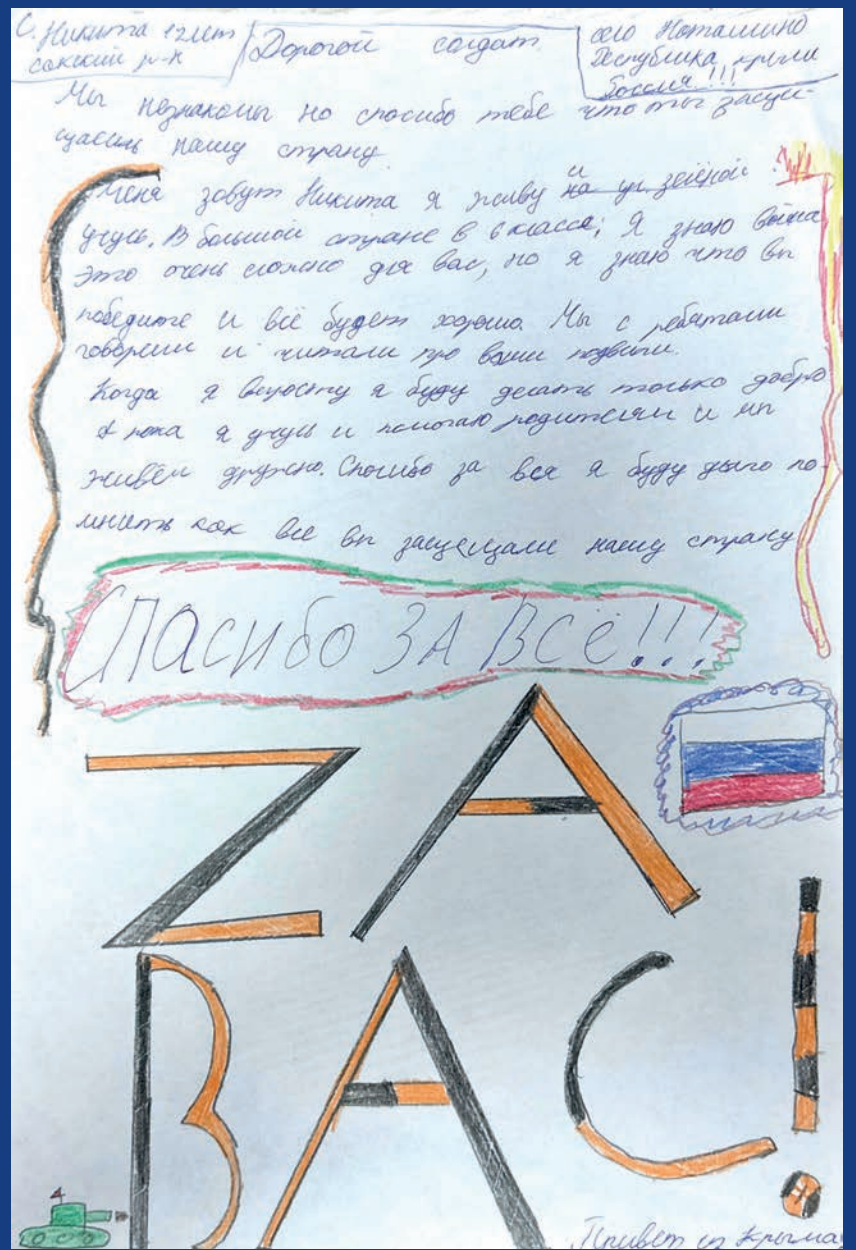 С. Никита 12 лет
сакский р-н
Дорогой солдат
село Наташино
Республика крым
Россия!!!
Мы незнакомы но спосибо тебе что ты защи-
щаешь нашу страну
Меня зовут Никита я живу и на ул. зелёной
учусь. В большой стране в 6 классе; Я знаю война
это очень сложно для вас, но я знаю что вы
победите и всё будет хорошо. Мы с ребятами
говорили и читали про ваши подвиги.
Когда я выросту я буду делать только добро
А пока я учусь и помогаю родителям и мы
живём дружно. Спосибо за вся я буду долго по-
мнить как все вы защещали нашу страну
Спасибо ЗА Всё!!!
ZА
ВАС!
Привет из Крыма